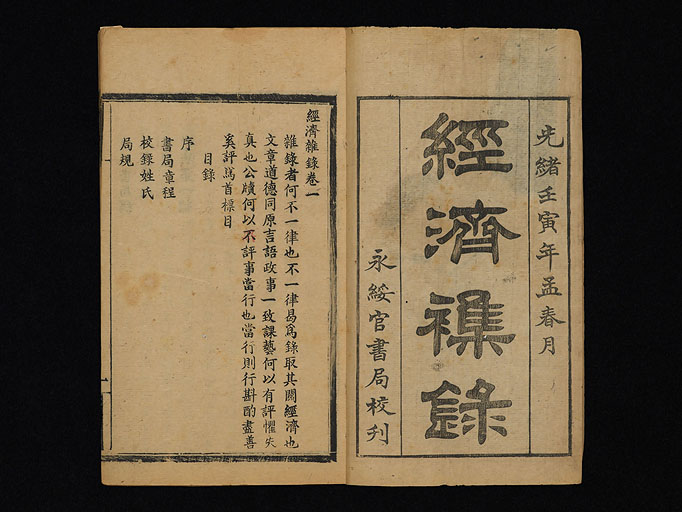 光緒壬寅年孟春月
經濟襍錄
永綏官書局校刊
經濟雜錄卷一
雜錄者何不一律也不一律曷為錄取其關經濟也
文章道德同原言語政事一致課藝何以有評懼失
真也公牘何以不評事當行也當行則行斟酌盡善
奚評爲首標目
目錄
序
書局章程
校錄姓氏
局規